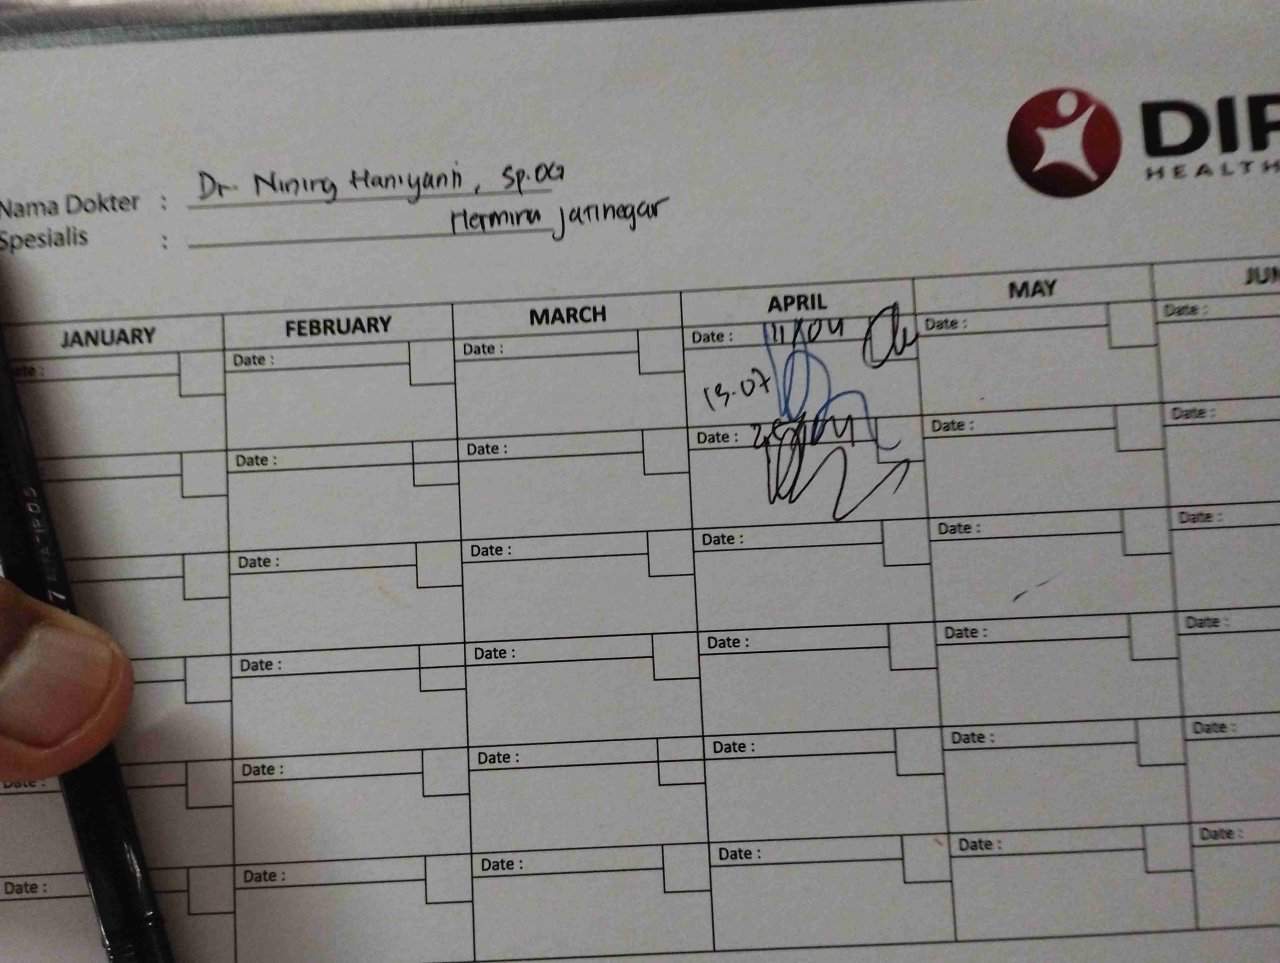 DIP
HEALTH
Nama Dokter : Dr. Nining Haniyanti, Sp.OG
Spesialis : Hermina Jatinegar
JANUARY FEBRUARY MARCH APRIL MAY JUN
Date : Date : Date : Date : 11/04 Date : Date :
13.07
Date : Date : Date : Date : Date :
Date : Date : Date : Date : Date :
Date : Date : Date : Date : Date :
Date : Date : Date : Date : Date : Date :
Date : Date : Date : Date : Date : Date :